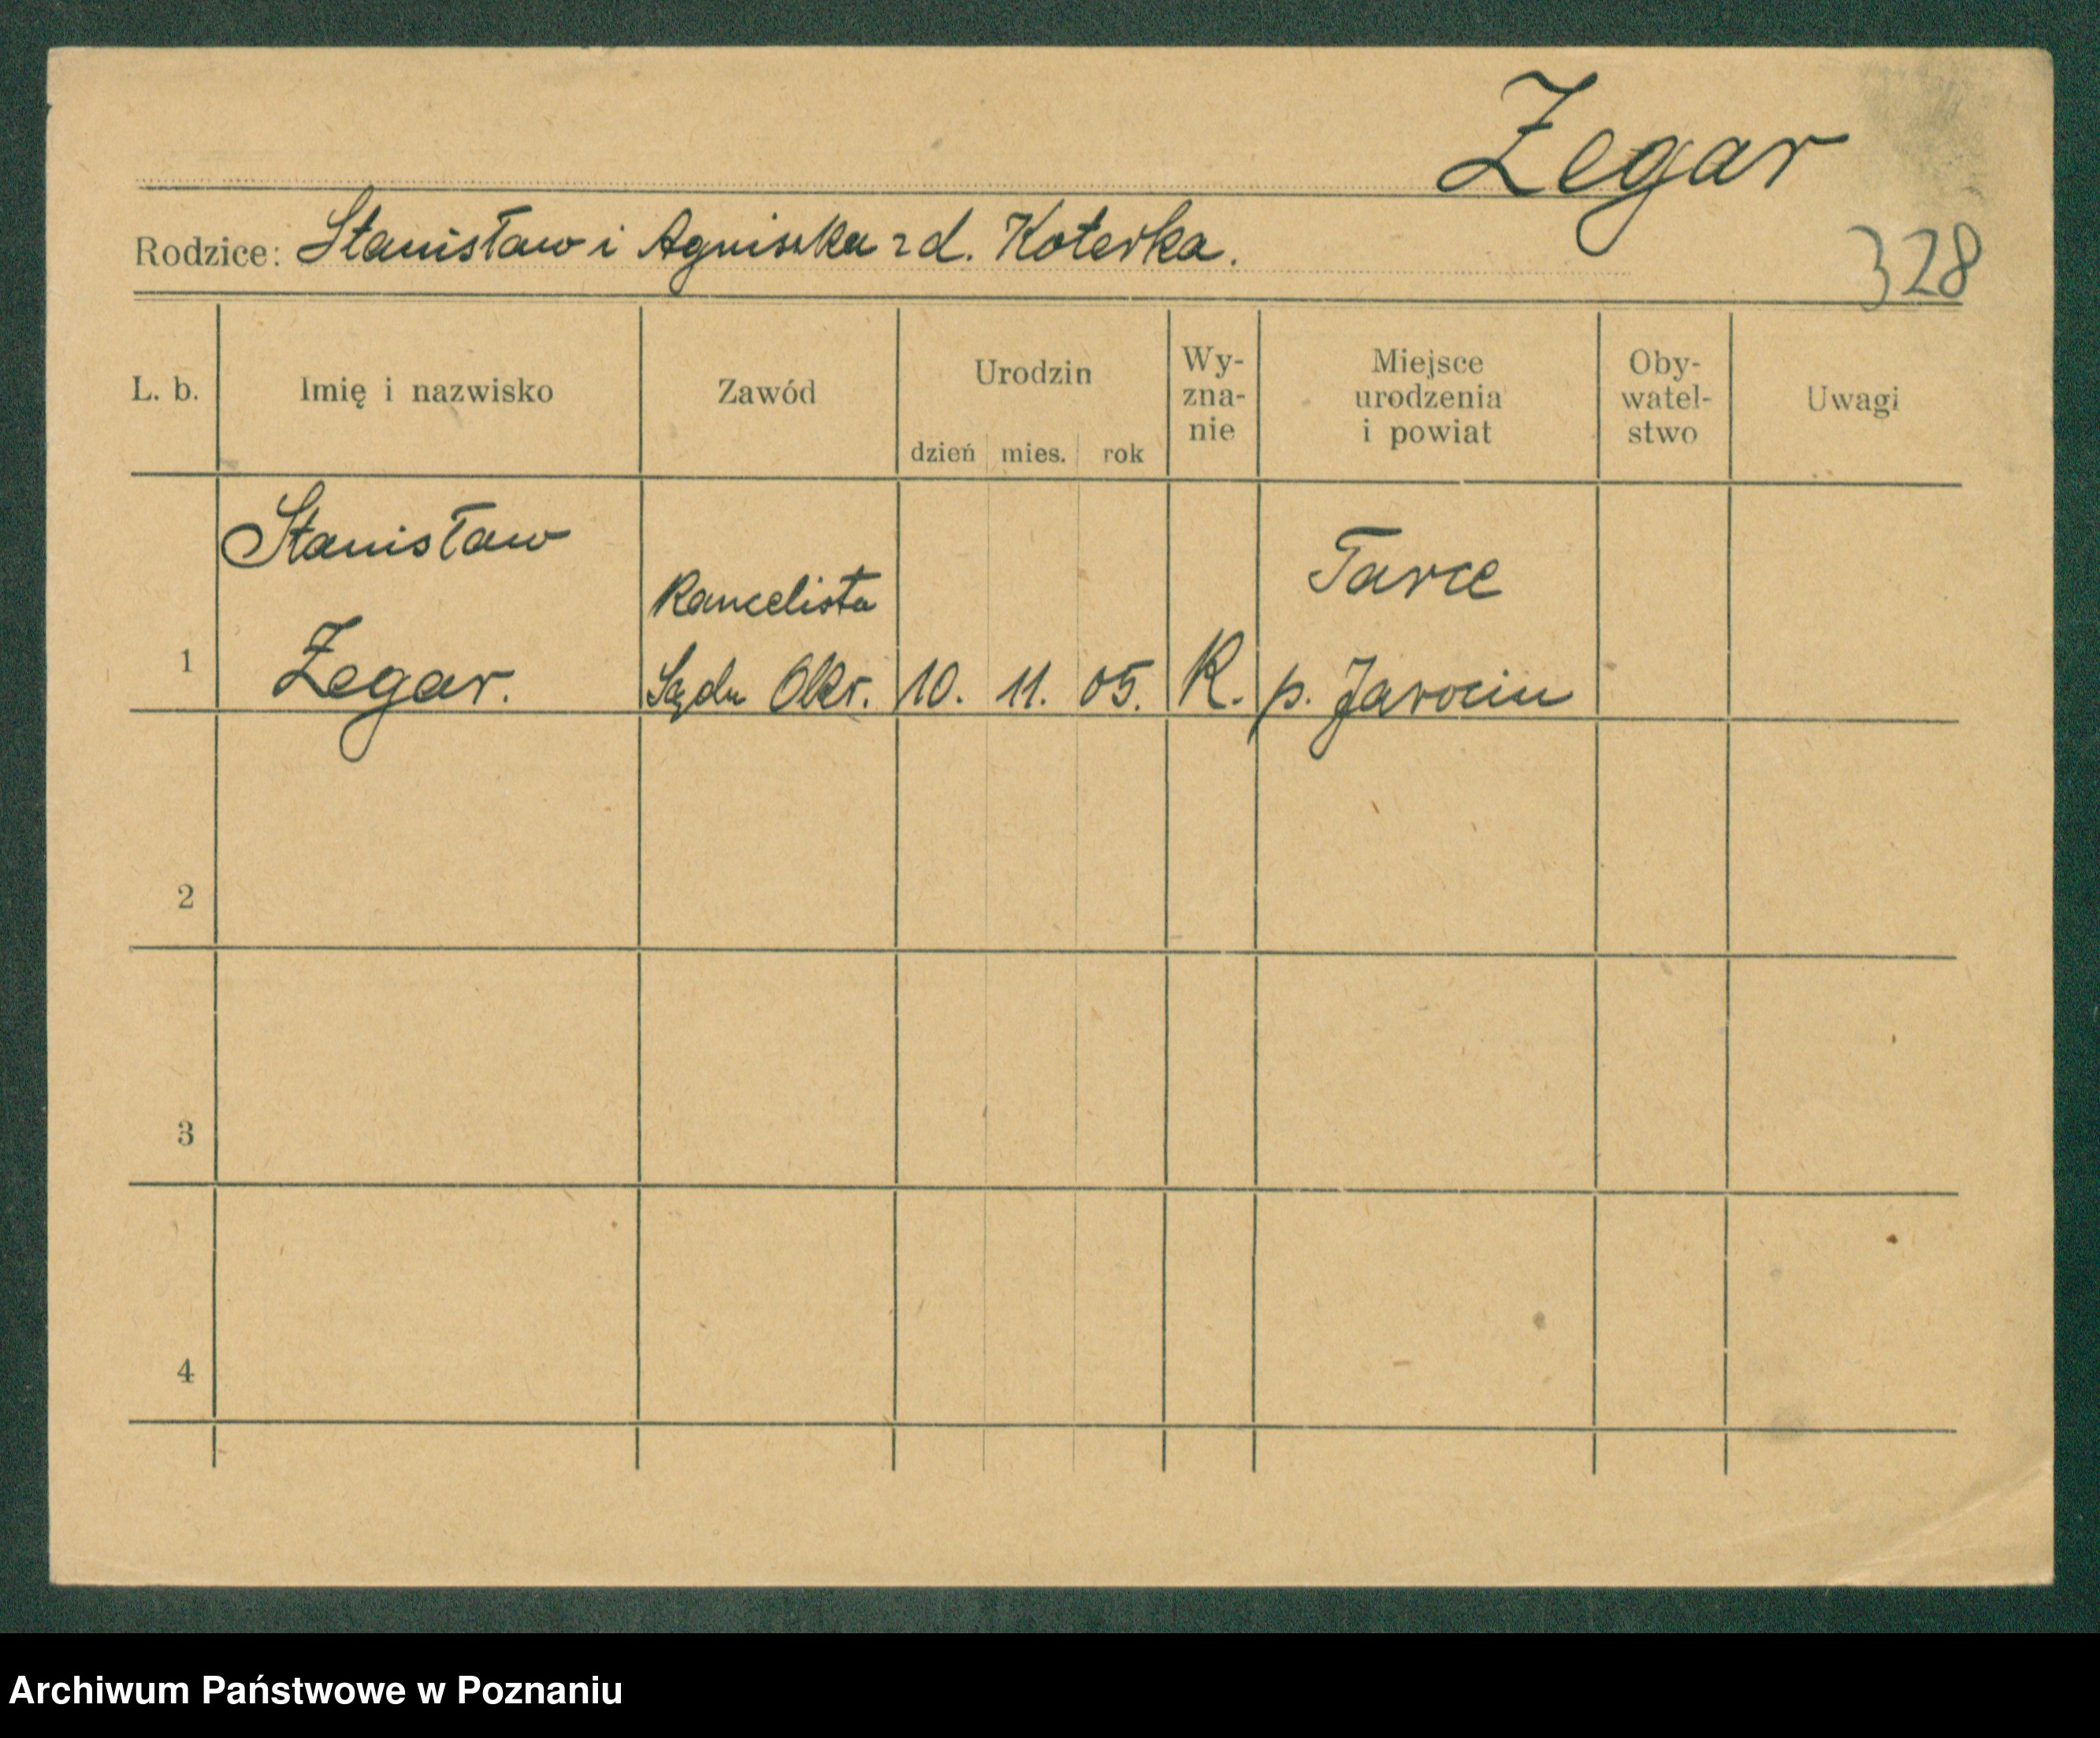 Zegar
Rodzice: Stanisław i Agniszka zd. Koterka.
328
L. b.
Imię i nazwisko
Zawód
Urodzin
dzień mies. rok
Wy-
zna-
nie
Miejsce
urodzenia
i powiat
Oby-
watel-
stwo
Uwagi
1
Stanisław
Zegar.
Kancelista
Sądu Okr.
10. 11. 05.
K.
Tarce
p. Jarocin
2
3
4
Archiwum Państwowe w Poznaniu